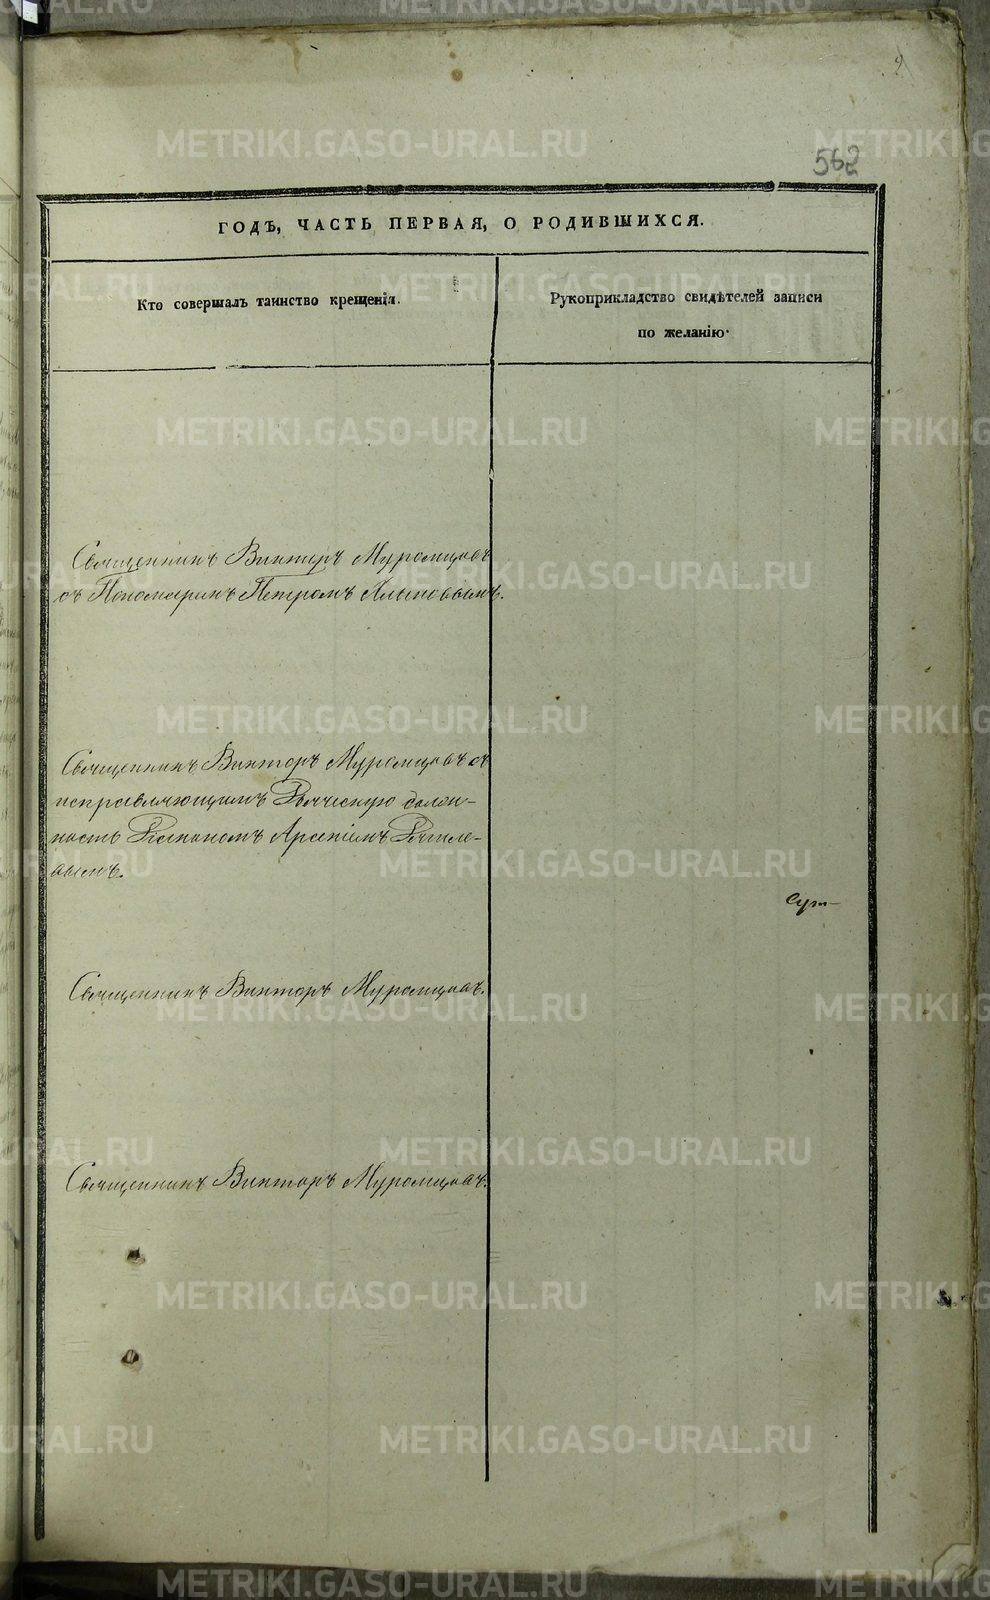 562
ГОДЪ, ЧАСТЬ ПЕРВАЯ, О РОДИВШИХСЯ.
Кто совершалъ таинство крещенія.
Рукоприкладство свидѣтелей записи
по желанію.
Священникъ Викторъ Муромцовъ
съ Пономаремъ Петромъ Хлыновымъ.
Священникъ Викторъ Муромцовъ съ
исправляющимъ Дьяческую долж-
ность Діакономъ Арсеніемъ
вымъ.
Священникъ Викторъ Муромцовъ.
Священникъ Викторъ Муромцовъ.
METRIKI.GASO-URAL.RU